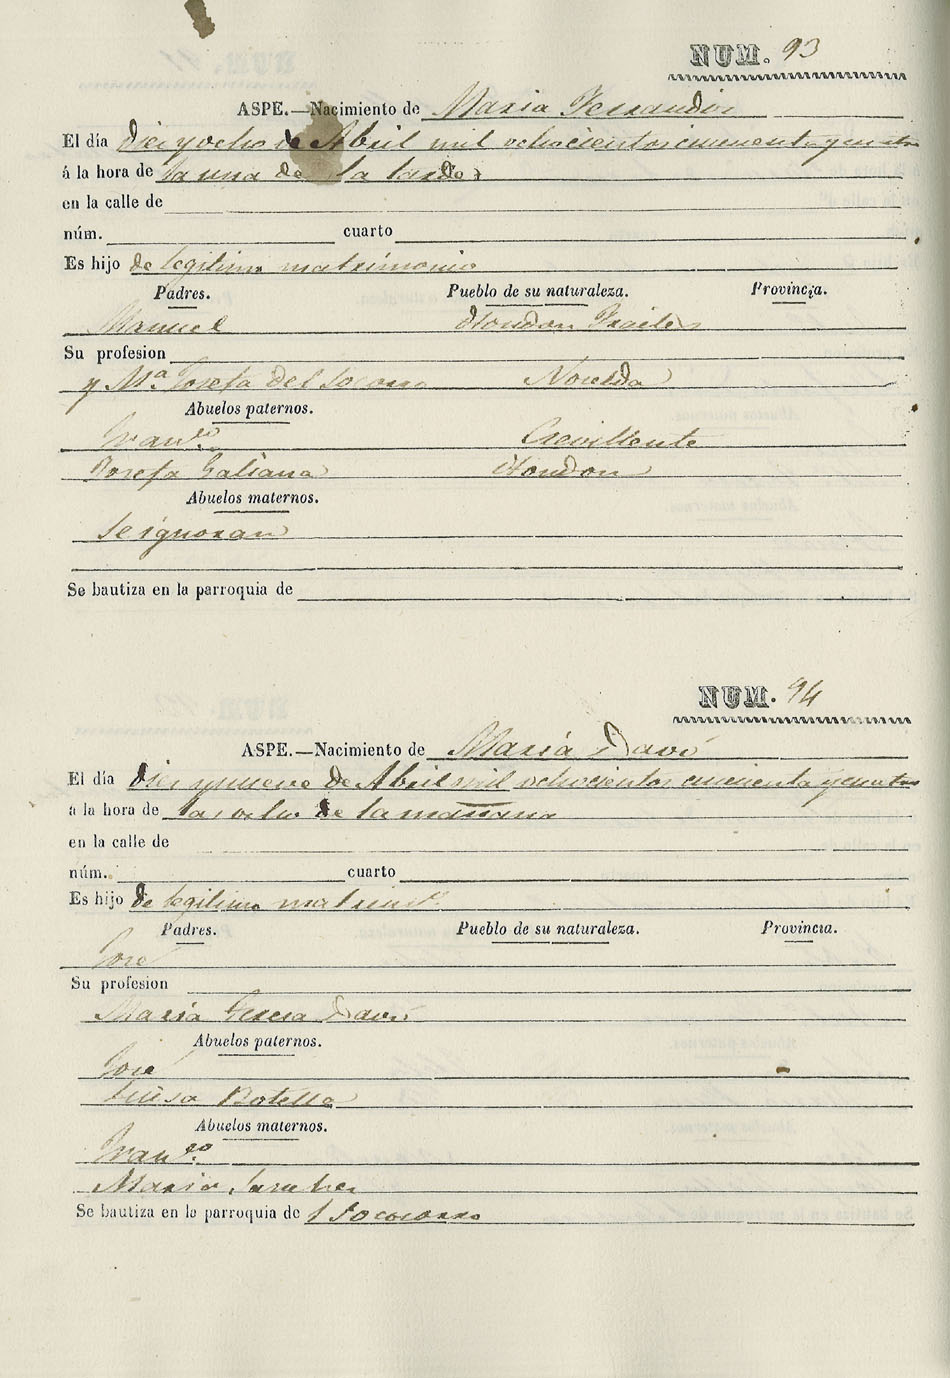 NUM. 93
ASPE.—Nacimiento de Maria Ferrandiz
El día diez y ocho de Abril mil ochocientos cincuenta y cuatro
á la hora de la una de la tarde
en la calle de
núm. cuarto
Es hijo de legitimo matrimonio
Padres. Pueblo de su naturaleza. Provincia.
Manuel Hondon Frailes
Su profesion
y Mª Josefa del Socorro Novelda
Abuelos paternos.
Franco Crevillente
Josefa Galiana Hondon
Abuelos maternos.
Se ignoran
Se bautiza en la parroquia de
NUM. 94
ASPE.—Nacimiento de Maria Davó
El día diez y nueve de Abril mil ochocientos cincuenta y cuatro
a la hora de las ocho de la mañana
en la calle de
núm. cuarto
Es hijo de legitimo matrimo
Padres. Pueblo de su naturaleza. Provincia.
Jose
Su profesion
Maria Teresa Davó
Abuelos paternos.
Jose
Luisa Botella
Abuelos maternos.
Franco
Maria Sanchez
Se bautiza en la parroquia de l Socorro